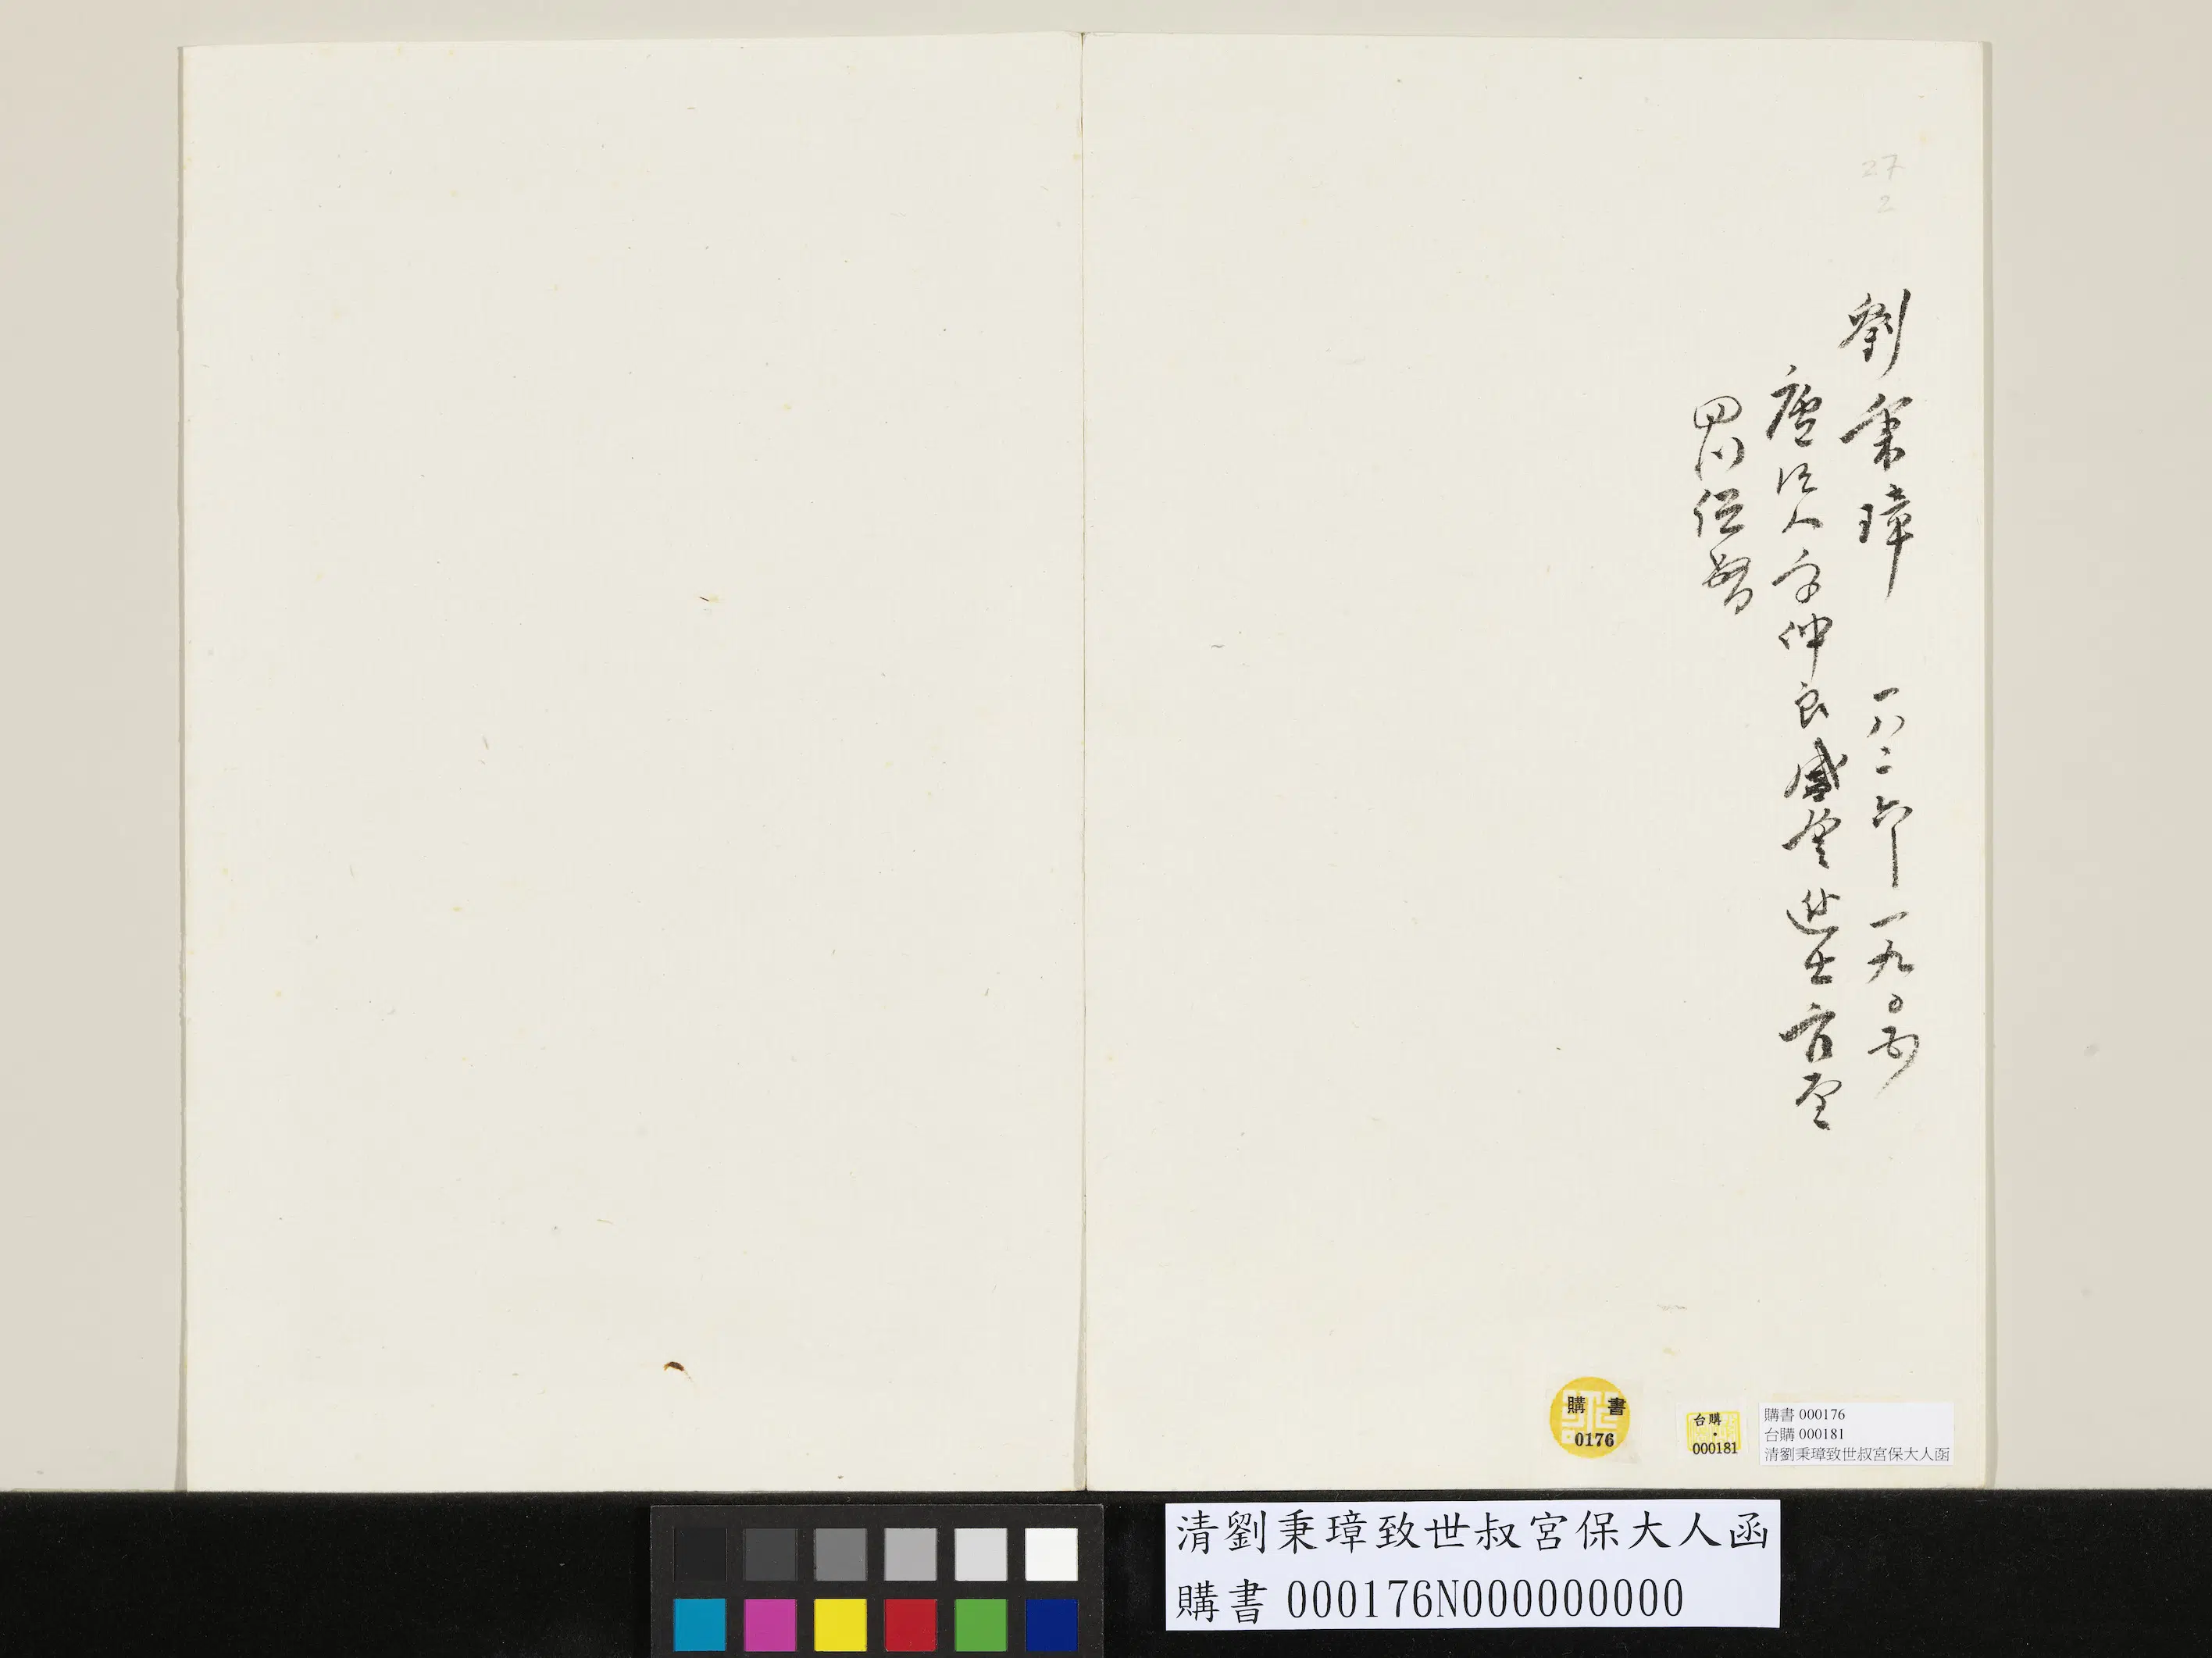 27
2
劉秉璋 一八二六—一九〇五
廬江人字仲良咸豐進士官至
四川總督
購書
0176
台購
000181
購書 000176
台購 000181
清劉秉璋致世叔宮保大人函
清劉秉璋致世叔宮保大人函
購書 000176N000000000